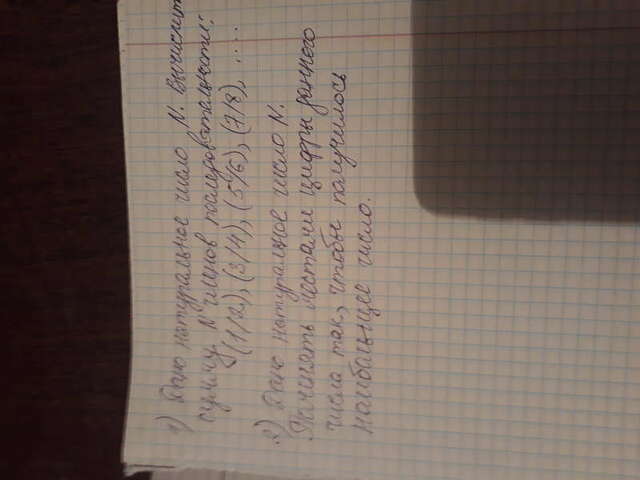 1) Дано натуральное число N. Вычислить
сумму N членов последовательности:
(1/2), (3/4), (5/6), (7/8), ....
2) Дано натуральное число N.
Поменять местами цифры данного
числа так, чтобы получилось
наибольшее число.